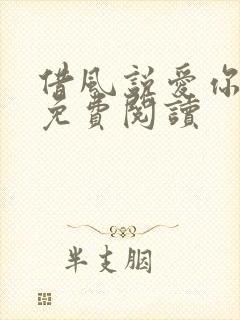 借風說愛你
免費閱讀
半支胭